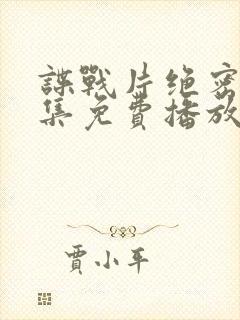 諜戰片绝密
集免費播放
賈小平